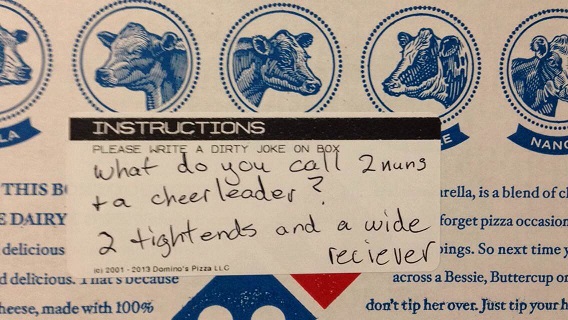 LA
EE
NANC
INSTRUCTIONS
PLEASE WRITE A DIRTY JOKE ON BOX
What do you call 2 nuns
+ a cheerleader?
2 tightends and a wide
reciever
(c) 2001 - 2013 Domino's Pizza LLC
THIS B
E DAIRY
delicious
d delicious. That's because
heese, made with 100%
arella, is a blend of ch
forget pizza occasion
pings. So next time y
across a Bessie, Buttercup or
don't tip her over. Just tip your h